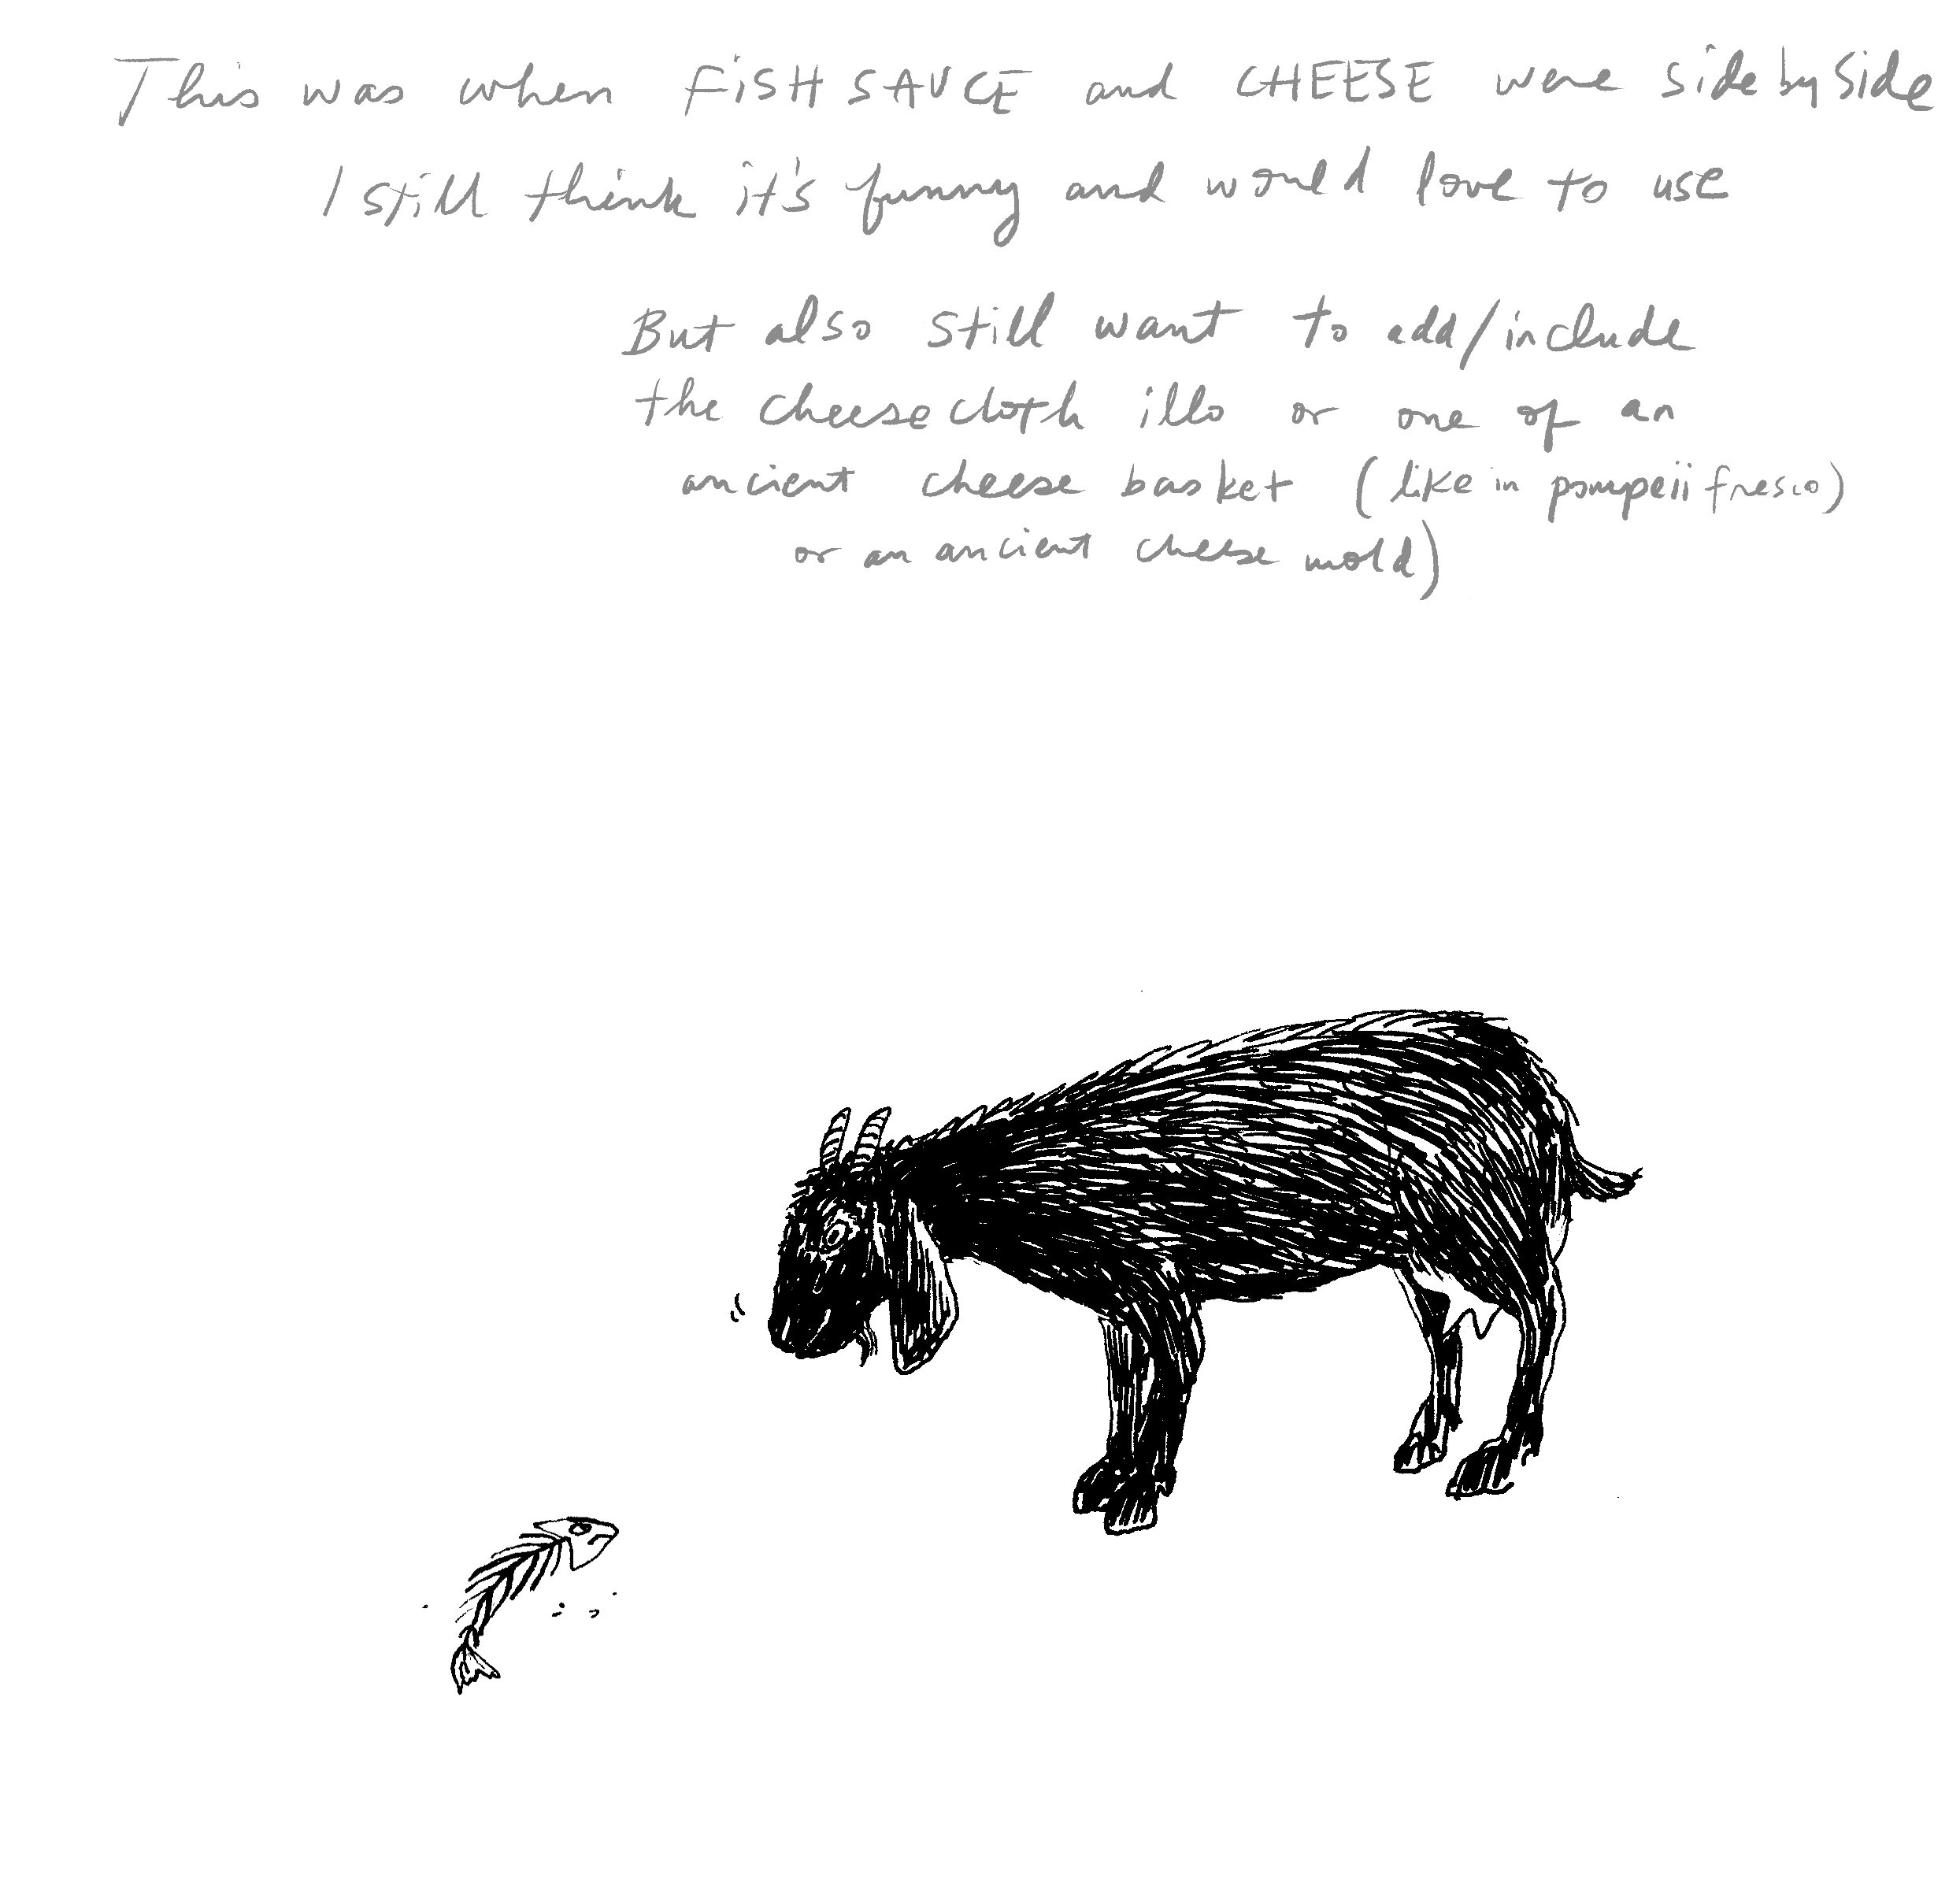 This was when FiSH SAUCE and CHEESE were side by side
I still think it's funny and would love to use
But also still want to add/include
the cheesecloth illo or one of an
ancient cheese basket (like in pompeii fresco)
or an ancient cheese mold)